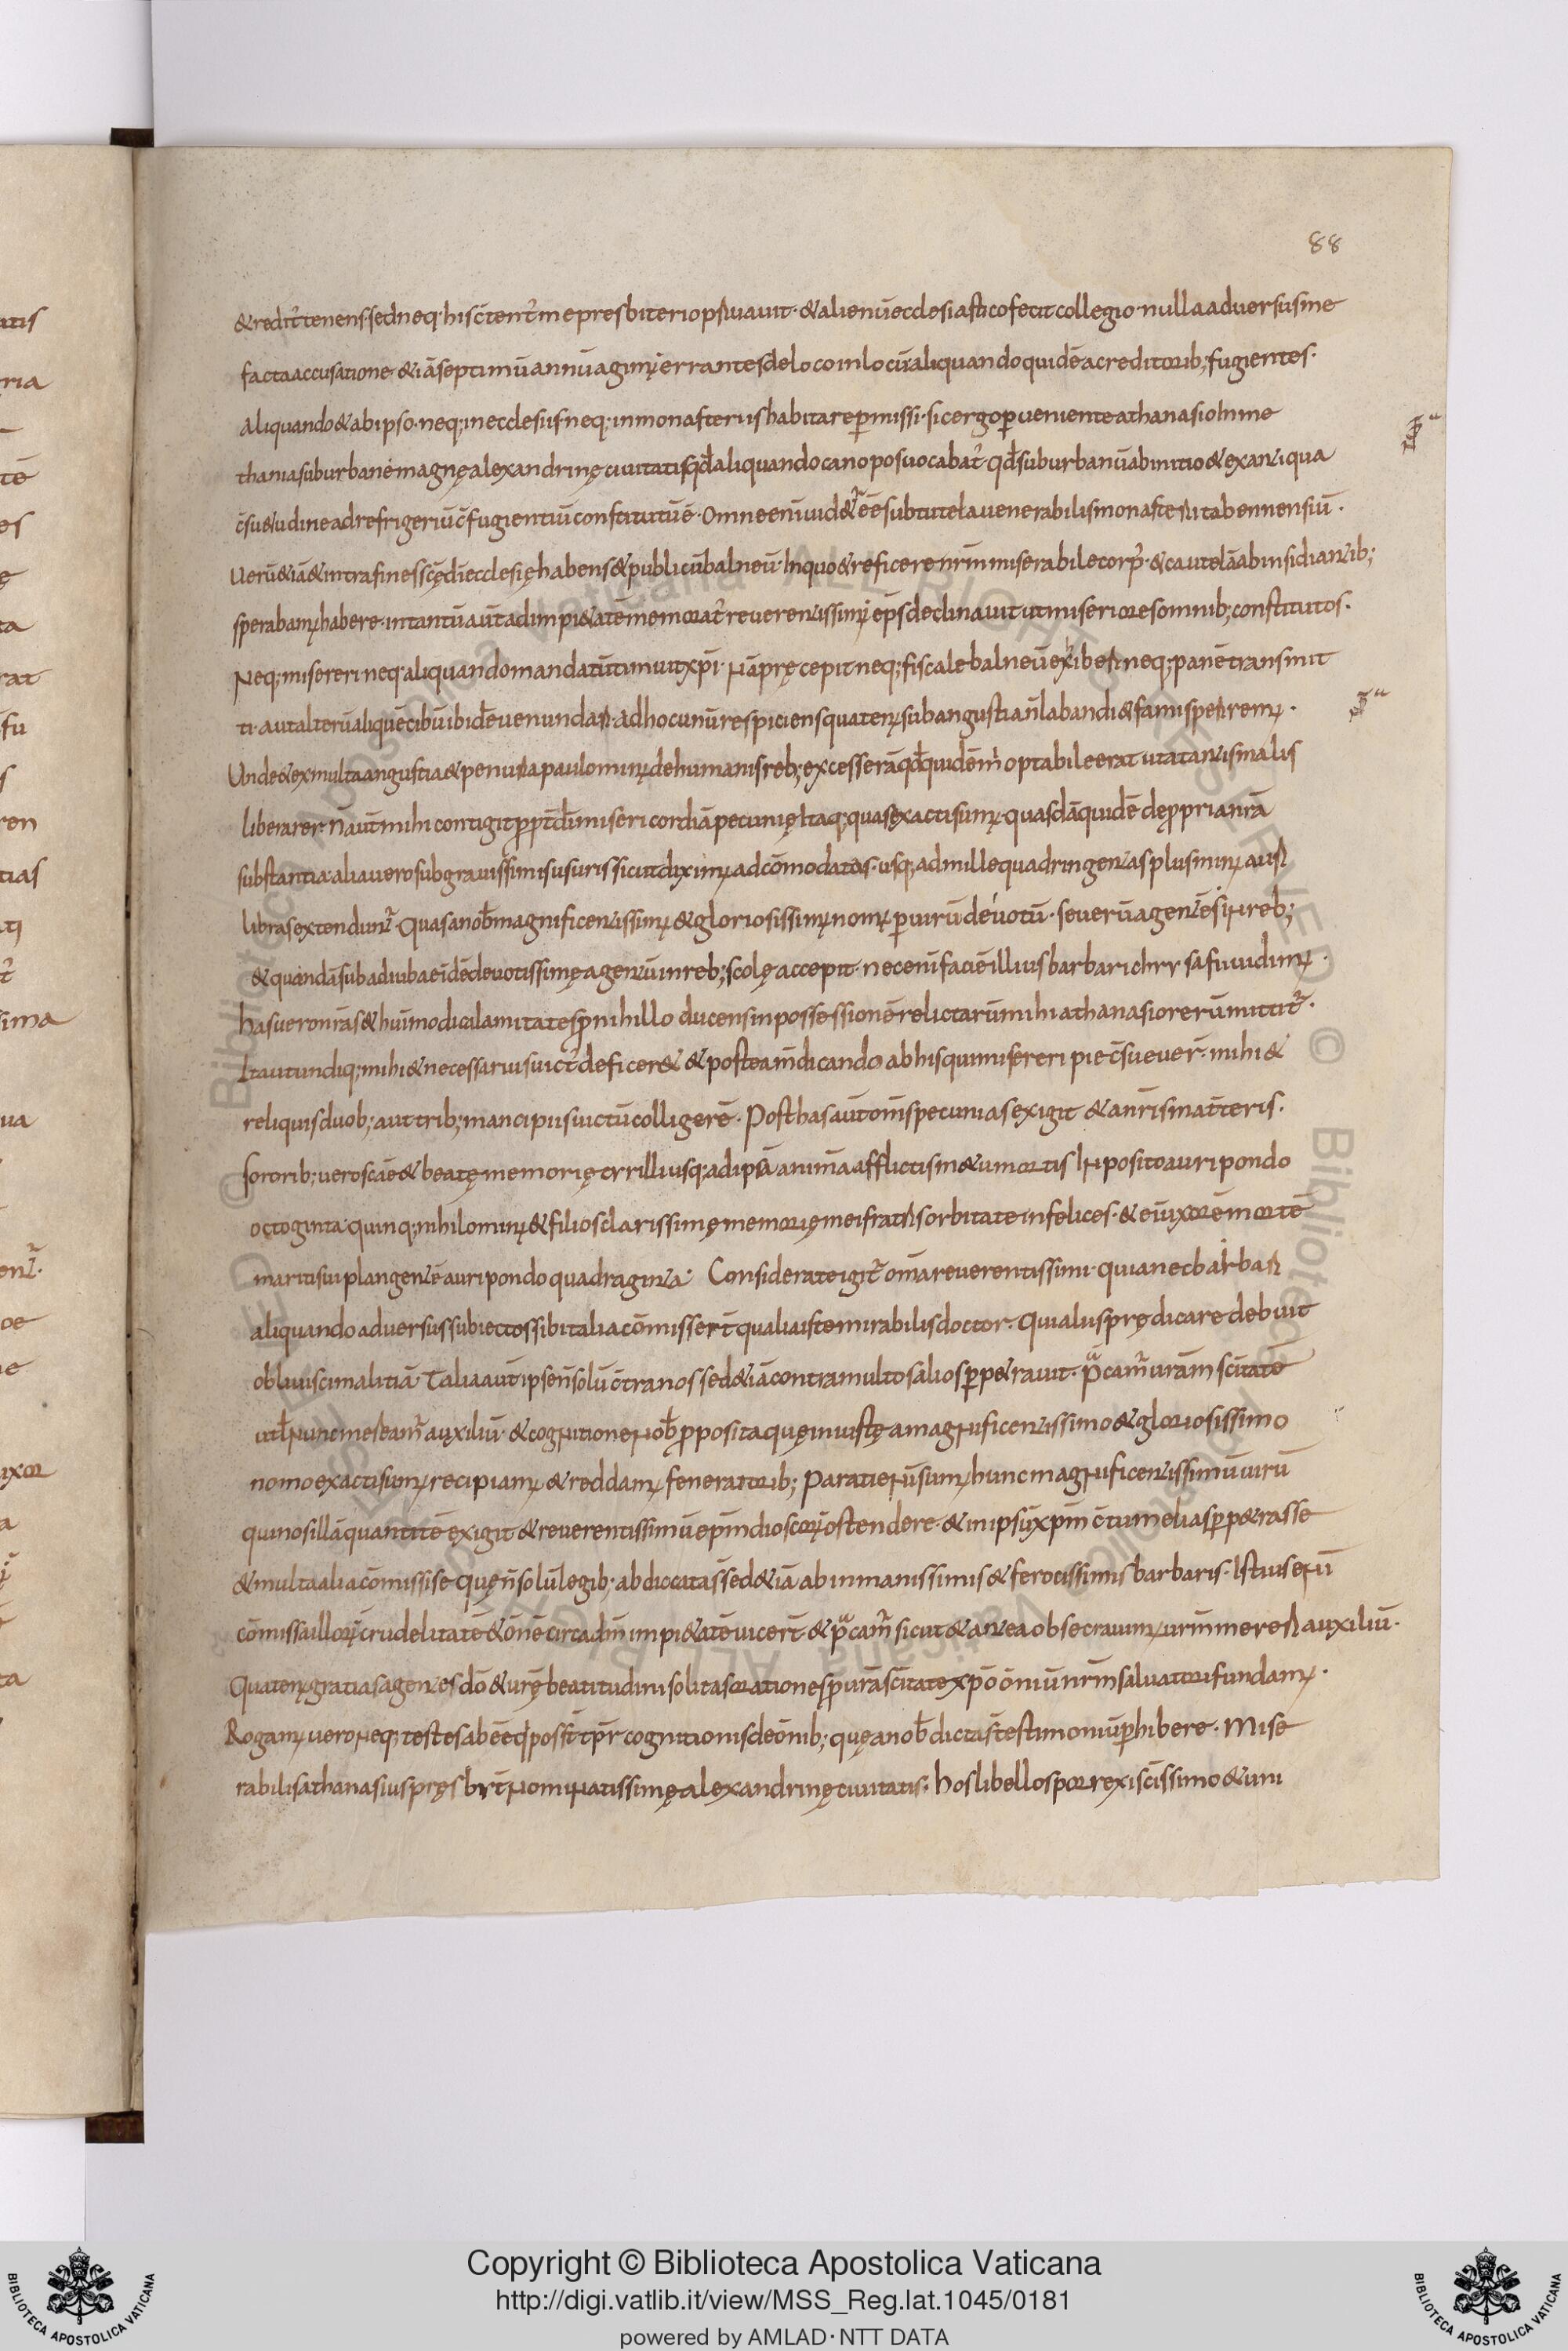 88
& reditꝰ tenens· sed neq; his c̄tentꝰ me presbiterio priuauit· & alienū ecclesiastico fecit collegio· nulla aduersus me
facta accusatione· & iā septimū annū agimꝰ errantes de loco in locū· aliquando quidē a creditorib; fugientes·
aliquando & ab ipso· neq; in ecclesiis· neq; in monasteriis habitare p̄missi· sic ergo p̄ueniente athanasio in me
thania suburbane magnę alexandrinę ciuitatis qd̄ aliquando canopos uocabat̄ qd̄ suburbanū ab initio & ex antiqua
c̄suetudine ad refrigeriū c̄fugientiū constitutū ē· Omne enī uidet̄ ēē sub tutela uenerabilis monasterii tabennensiū·
Uerū &iā & intra fines scę dī ecclesię habens & publicū balneū· In quo & reficere nr̄m miserabile corpꝰ· & cautelā ab insidiantib;
sperabamꝰ habere· in tantū aūt ad impi&atē memoratꝰ reuerentissimꝰ ep̄s declinauit ut miseriores omnib; constitutos·
Neq; misereri neq; aliquando mandatū timuit xp̄i· Nā pręcepit neq; fiscale balneū exiberi neq; panē transmit
ti· aut alterū aliquē cibū ibidē uenundari· ad hoc unū respiciens quatenꝰ sub angustia n̄ labandi & famis periremꝰ·
Unde & ex multa angustia & penuria paulo minꝰ de humanis reb; excesserā qd̄ quidē m̄ optabile erat ut a tantis malis
liberarer· n̄ aūt mihi contigit ꝓpt̄ dī misericordiā pecunię Itaq; quas exacti sumꝰ· quasdā quidē de ꝓpria nr̄ā
substantia· alia uero sub grauissimis usuris sicut diximꝰ adcōmodatas· usq; ad mille quadringentas plus minꝰ auri
libras extendunt̄· Quas a nob̄ magnificentissimꝰ & gloriosissimꝰ nomꝰ p̄ uirū deuotū· seuerū agentē sī in reb;
& quandā sub adiuba eīdē deuotissimę agentū in reb; scolę accepit· nec enī faciē illius barbari chrysafii uidimꝰ·
has uero nr̄as & huī modi calamitates ꝓ nihillo ducens in possessionē relictarū mihi athanasio rerū mittit̄·
Ita ut undiq; mihi & necessarius uictꝰ deficer& & postea m̄dicando ab his qui misereri pie c̄sueuer̄· mihi &
reliquis duob; aut trib; mancipiis uictū colligerē· Post has aūt om̄s pecunias exigit & a nr̄is mat̄teris·
sororib; uero scāe & beatę memorię cyrilli usq; ad ipsā animā afflictis m&u mortis Inposito auri pondo
octoginta quinq; nihilominꝰ & filios clarissimę memorię mei fratris orbitate infelices· & eiꝰ uxorē mortē
mariti sui plangentē auri pondo quadraginta· Considerate igit̄ om̄a reuerentissimi· quia nec barbari
aliquando aduersus subiectos sibi talia cōmisser̄t qualia iste mirabilis doctor· Qui alius prędicare debuit
obliuisci malitiā· Talia aūt ipse n̄ solū c̄tra nos sed &iā contra multos alios ꝑp&rauit· p̄camꝰ ur̄am scītatē
ut ł nunc mereamꝰ auxiliū· & cognitione nob̄ ꝓposita quę iniustę a magnificentissimo & gloriosissimo
nomo exacti sumꝰ recipiamꝰ & reddamꝰ feneratorib; Parati enī sumꝰ hunc magnificentissimū uirū
qui nos illā quantitē exigit & reuerentissimū ep̄m dioscorū ostendere· & in ipsū xp̄m c̄tumelias ꝑp&rasse
& multa alia cōmississe· quę n̄ solū legib; ab dicatas sed &iā ab inmanissimis & ferocissimis barbaris· Isti uis enī
cōmissa illorū crudelitatē & ōnē circa dm̄ impi&atē uicer̄t & p̄camꝰ sicut & antea obsecrauimꝰ ur̄m mereri auxiliū·
Quatenꝰ gratias agentes dō & ur̄ę beatitudini solitas orationes ꝓ ur̄a scītate xp̄o ōniū nr̄m saluatori fundamꝰ·
Rogamꝰ uero neq; testes abēē q possit tp̄r cognitionis de ōnib; quę a nob̄ dicta st̄ testimoniū ꝑhibere· Mise
rabilis athanasius pręsbr̄t nominatissimę alexandrinę ciuitatis· hos libellos porrexi scissimo & uni
Copyright © Biblioteca Apostolica Vaticana
http://digi.vatlib.it/view/MSS_Reg.lat.1045/0181
powered by AMLAD·NTT DATA